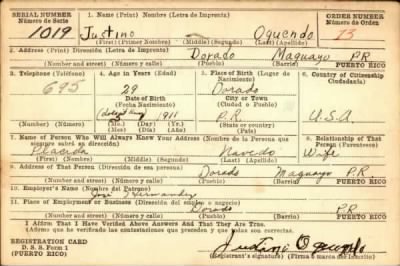 SERIAL NUMBER
Número de Serie
1. Name (Print) Nombre (Letra de Imprenta)
ORDER NUMBER
Número de Orden
1019 Justino Oquendo 13
(First) (Primer Nombre) (Middle) (Segundo) (Last) (Apellido)
2. Address (Print) Dirección (Letra de Imprenta)
Dorado Maguayo P.R
(Number and street) (Número y calle) (Town) (Pueblo) (Barrio) PUERTO RICO
3. Telephone (Teléfono)
4. Age in Years (Edad)
5. Place of Birth (Lugar de Nacimiento)
6. Country of Citizenship
Ciudadanía
695 29 Dorado
Date of Birth
(Fecha Nacimiento)
City or Town
(Ciudad o Pueblo)
1911 P.R U.S.A
(Number) (Número)
(Mo.) (Day) (Yr.)
(Mes) (Día) (Año)
(State or country)
(Estado o país)
7. Name of Person Who Will Always Know Your Address (Nombre de la Persona que siempre sabrá su dirección)
8. Relationship of That Person (Parentesco)
Placida Navedo Wife
(First) (Nombre) (Middle) (Segundo) (Last) (Apellido)
9. Address of That Person (Dirección de esa persona)
Dorado Maguayo P.R
(Number and street) (Número y calle) (Town) (Pueblo) (Barrio) PUERTO RICO
10. Employer's Name (Nombre del Patrono)
José Hernandez
11. Place of Employment or Business (Dirección del empleo o negocio)
Dorado P.R
(Number and street) (Número y calle) (Town) (Pueblo) (Barrio) PUERTO RICO
I Affirm That I Have Verified Above Answers And That They Are True.
(Afirmo que he verificado las contestaciones que preceden y que éstas son correctas.
REGISTRATION CARD
D. S. S. Form 1
(PUERTO RICO)
Justino Oquendo
(Registrant's signature) (Firma o marca del inscrito)